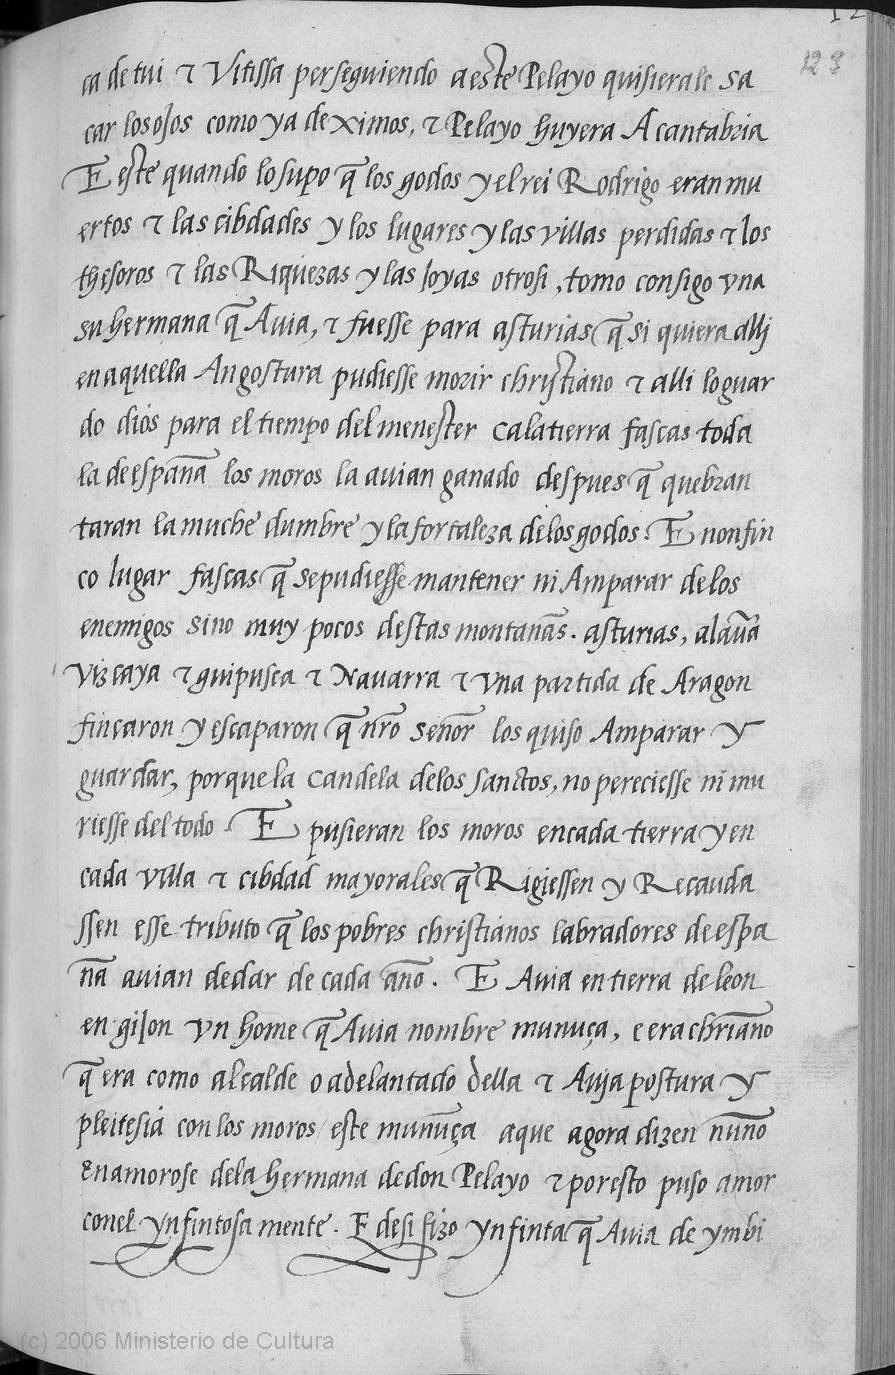 12
123
ca de tui ⁊ Vitissa perseguiendo a este Pelayo quisierale sa
car los ojos como ya deximos, ⁊ Pelayo huyera A cantabria
E este quando lo supo q̃ los godos y el rei Rodrigo eran mu
ertos ⁊ las cibdades y los lugares y las villas perdidas ⁊ los
thesoros ⁊ las Riquezas y las Joyas otrosi, tomo consigo vna
su hermana q̃ Auia, ⁊ fuesse para asturias q̃ si quiera allj
en aquella Angostura pudiesse morir christiano ⁊ alli lo guar
do dios para el tiempo del menester Ca la tierra fascas toda
la de españa los moros la auian ganado despues q̃ quebran
taran la muchedumbre y la fortaleza delos godos. E non fin
co lugar fascas q̃ se pudiesse mantener ni Amparar delos
enemigos sino muy pocos destas montañas. asturias, alaua
Vizcaya ⁊ guipusca ⁊ Nauarra ⁊ vna partida de Aragon
fincaron y escaparon q̃ nr̃o señor los quiso Amparar y
guardar, porque la Candela delos sanctos, no pereciesse ni mu
riesse del todo. E pusieran los moros en cada tierra y en
cada villa ⁊ cibdad mayorales q̃ Rigiessen y Recauda
ssen esse tributo q̃ los pobres christianos labradores de espa
ña auian de dar de cada año. E Auia en tierra de leon
en giJon vn home q̃ Auia nombre munuça, e era chr̃iano
q̃ era como alcalde o adelantado della ⁊ Auja postura y
pleitesia con los moros / este munuça aque agora dizen nuño
Enamorose dela hermana de don Pelayo ⁊ por esto puso amor
conel ynfintosa mente. E desi fizo ynfinta q̃ Auia de ymbi
(c) 2006 Ministerio de Cultura